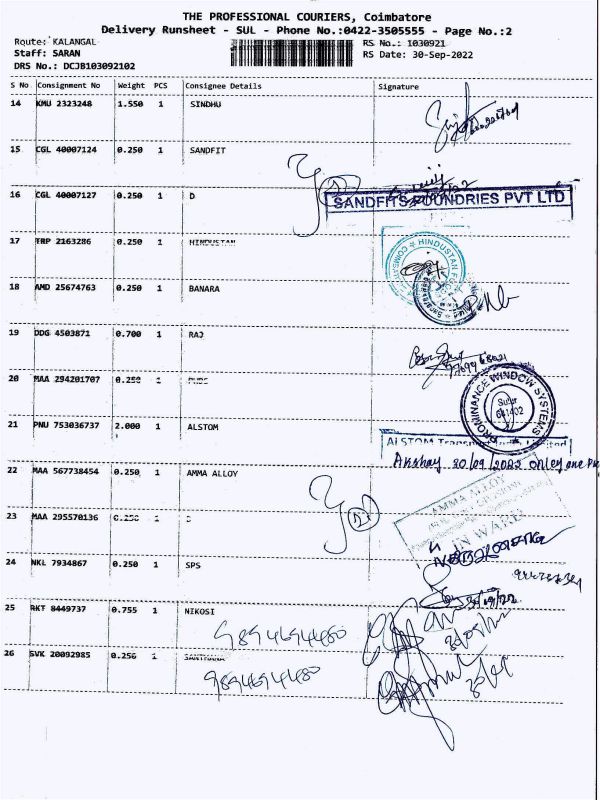 THE PROFESSIONAL COURIERS, Coimbatore
Delivery Runsheet - SUL - Phone No.:0422-3505555 - Page No.:2
Route: KALANGAL
RS No.: 1030921
Staff: SARAN
RS Date: 30-Sep-2022
DRS No.: DCJB103092102
S No Consignment No Weight PCS Consignee Details Signature
14 KMU 2323248 1.550 1 SINDHU
15 CGL 40007124 0.250 1 SANDFIT
16 CGL 40007127 0.250 1 D
SANDFITS FOUNDRIES PVT LTD
17 TRP 2163286 0.250 1 HINDUSTAN
HINDUSTAN
18 AMD 25674763 0.250 1 BANARA
19 DDG 4503871 0.700 1 RAJ
20 MAA 294201707 0.250 1
PROMINANCE WINDOW SYSTEMS
Sulur
641402
21 PNU 753036737 2.000 1 ALSTOM
ALSTOM Transport India Limited
Akshay 30/09/2022 onley one
22 MAA 567738454 0.250 1 AMMA ALLOY
AMMA ALLOY
IN WARD
23 MAA 295570136 0.250 1
24 NKL 7934867 0.250 1 SPS
25 RKT 8449737 0.755 1 NIKOSI
9894694480
26 SVK 20092985 0.256 1
9894694480